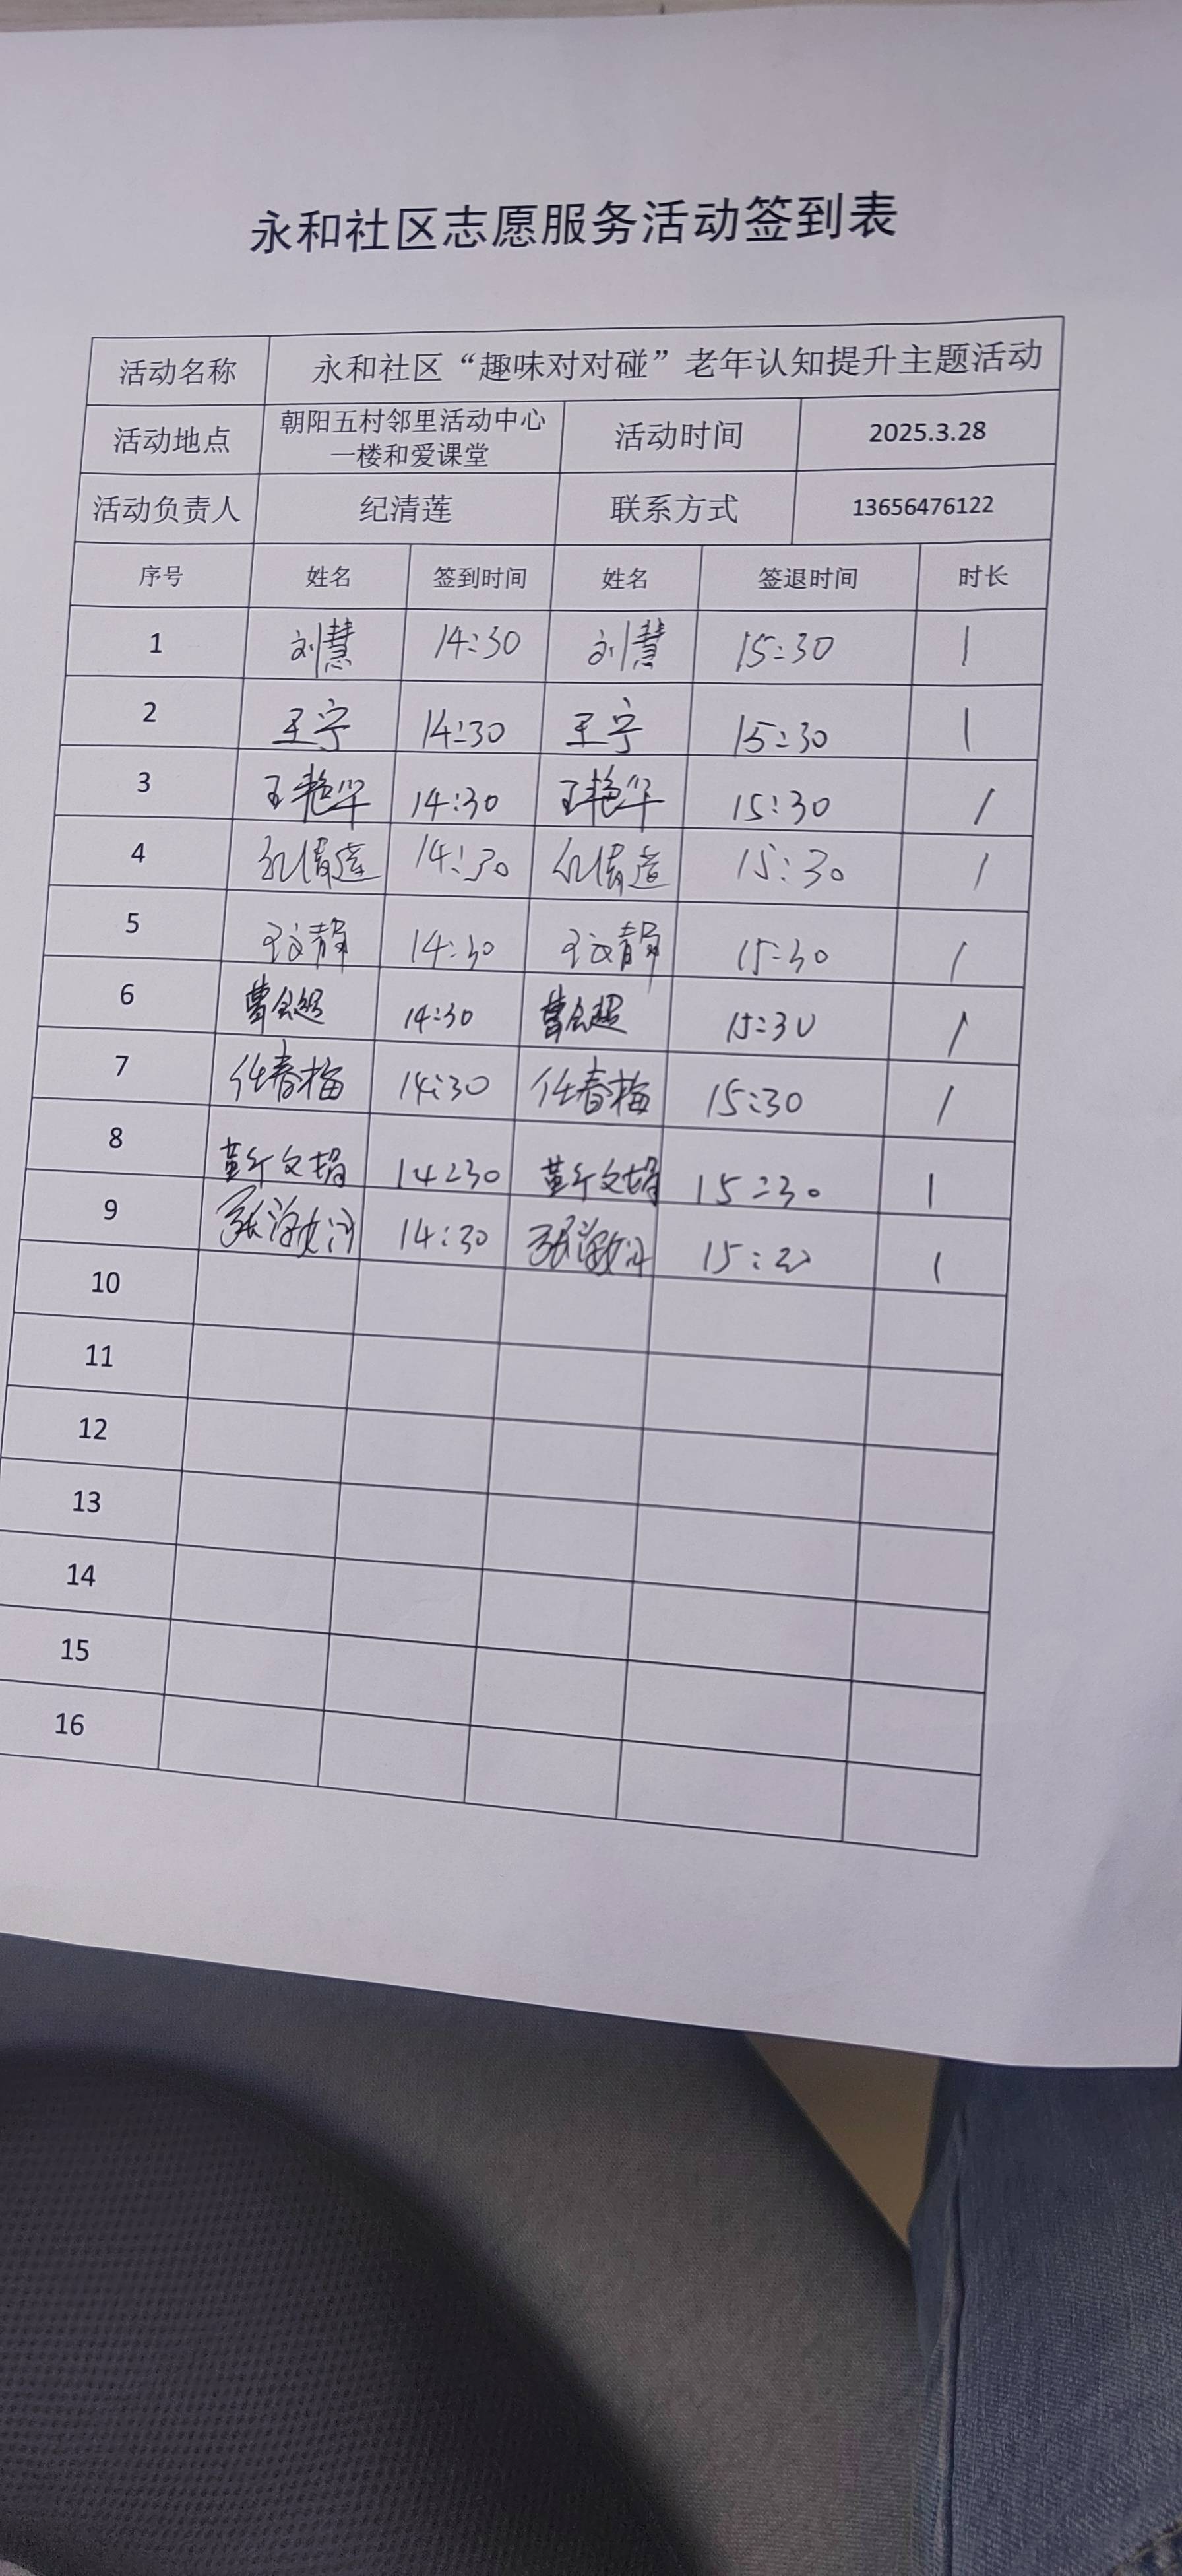 永和社区志愿服务活动签到表
活动名称 永和社区“趣味对对碰”老年认知提升主题活动
活动地点 朝阳五村邻里活动中心一楼和爱课堂 活动时间 2025.3.28
活动负责人 纪清莲 联系方式 13656476122
序号 姓名 签到时间 姓名 签退时间 时长
1 刘慧 14:30 刘慧 15:30 1
2 王宁 14:30 王宁 15:30 1
3 王艳华 14:30 王艳华 15:30 1
4 纪清莲 14:30 纪清莲 15:30 1
5 王文静 14:30 王文静 15:30 1
6 14:30 15:30 1
7 任春梅 14:30 任春梅 15:30 1
8 14:30 15:30 1
9 14:30 15: 1
10
11
12
13
14
15
16